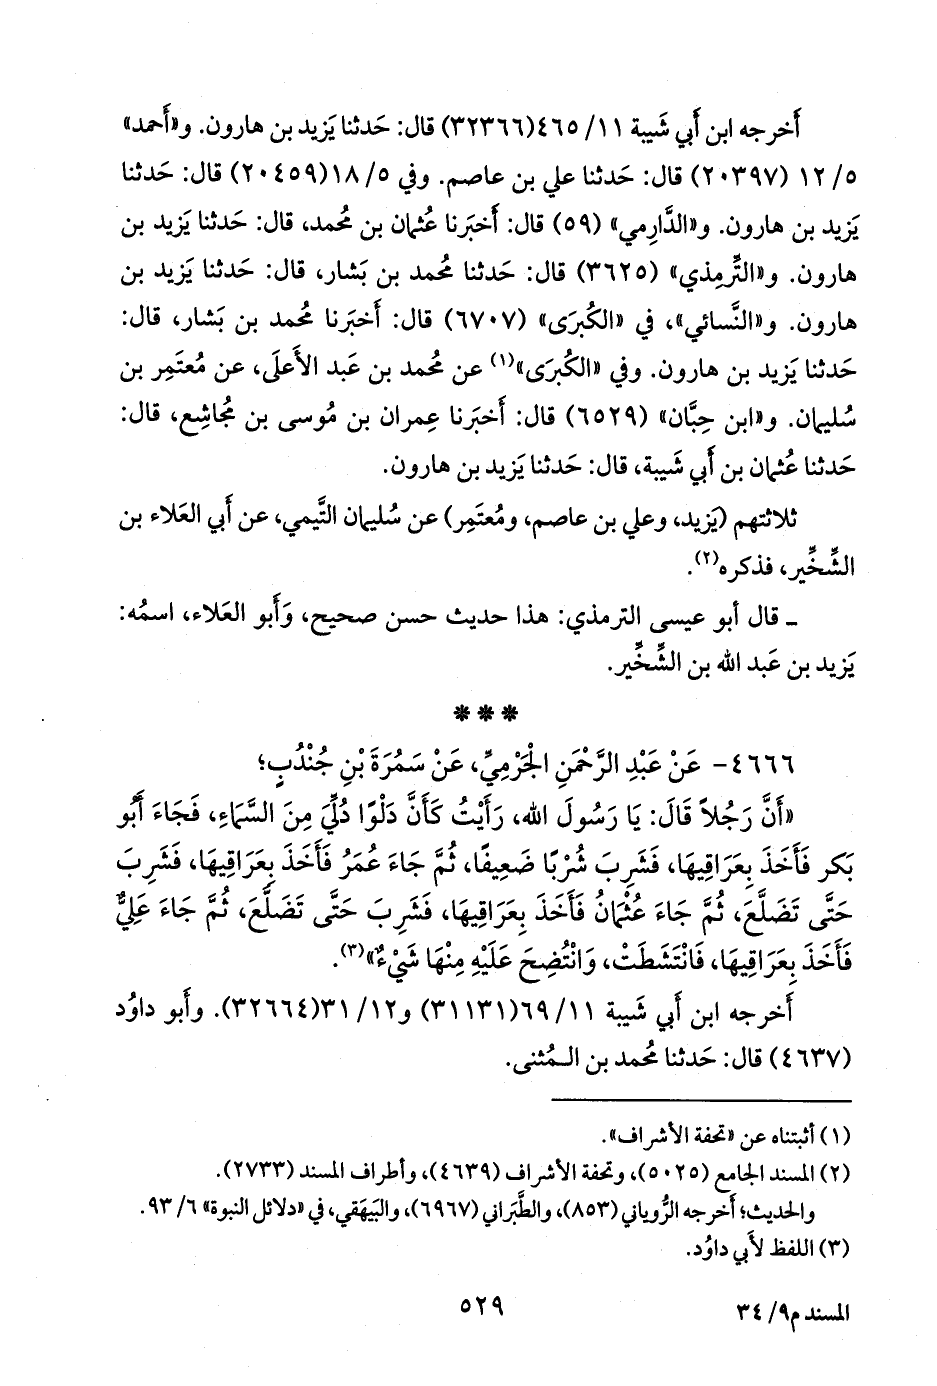 أَخرجه ابن أَبي شَيبة ١١/ ٤٦٥(٣٢٣٦٦) قال: حَدثنا يَزيد بن هارون. و«أَحمد»
٥/ ١٢ (٢٠٣٩٧) قال: حَدثنا علي بن عاصم. وفي ٥/ ١٨(٢٠٤٥٩) قال: حَدثنا
يَزيد بن هارون. و«الدَّارِمي» (٥٩) قال: أَخبَرنا عُثمان بن مُحمد، قال: حَدثنا يَزيد بن
هارون. و«التِّرمِذي» (٣٦٢٥) قال: حَدثنا مُحمد بن بَشار، قال: حَدثنا يَزيد بن
هارون. و«النَّسائي»، في «الكُبرَى» (٦٧٠٧) قال: أَخبَرنا مُحمد بن بَشار، قال:
حَدثنا يَزيد بن هارون. وفي «الكُبرَى»(١) عن مُحمد بن عَبد الأَعلَى، عن مُعتَمِر بن
سُليمان. و«ابن حِبَّان» (٦٥٢٩) قال: أَخبَرنا عِمران بن مُوسى بن مُجاشِع، قال:
حَدثنا عُثمان بن أَبي شَيبة، قال: حَدثنا يَزيد بن هارون.
ثلاثتهم (يَزيد، وعلي بن عاصم، ومُعتَمِر) عن سُليمان التَّيمي، عن أَبي العَلاء بن
الشِّخِّير، فذكره(٢).
ـ قال أَبو عيسى الترمذي: هذا حديث حسن صحيح، وَأَبو العَلاء، اسمُه:
يَزيد بن عَبد الله بن الشِّخِّير.
***
٤٦٦٦- عَنْ عَبْدِ الرَّحْمَنِ الْجَرْمِيِّ، عَنْ سَمُرَةَ بْنِ جُنْدُبٍ؛
«أَنَّ رَجُلاً قَالَ: يَا رَسُولَ الله، رَأَيْتُ كَأَنَّ دَلْوًا دُلِّيَ مِنَ السَّمَاءِ، فَجَاءَ أَبُو
بَكر فَأَخَذَ بِعَرَاقِيهَا، فَشَرِبَ شُرْبًا ضَعِيفًا، ثُمَّ جَاءَ عُمَرُ فَأَخَذَ بِعَرَاقِيهَا، فَشَرِبَ
حَتَّى تَضَلَّعَ، ثُمَّ جَاءَ عُثْمَانُ فَأَخَذَ بِعَرَاقِيهَا، فَشَرِبَ حَتَّى تَضَلَّعَ، ثُمَّ جَاءَ عَلِيٌّ
فَأَخَذَ بِعَرَاقِيهَا، فَانْتَشَطَتْ، وَانْتُضِحَ عَلَيْهِ مِنْهَا شَيْءٌ»(٣).
أَخرجه ابن أَبي شَيبة ١١/ ٦٩(٣١١٣١) و١٢/ ٣١(٣٢٦٦٤). وأَبو داوُد
(٤٦٣٧) قال: حَدثنا مُحمد بن الـمُثنى.
(١) أثبتناه عن «تحفة الأشراف».
(٢) المسند الجامع (٥٠٢٥)، وتحفة الأشراف (٤٦٣٩)، وأطراف المسند (٢٧٣٣).
والحديث؛ أَخرجه الرُّوياني (٨٥٣)، والطَّبَراني (٦٩٦٧)، والبَيهَقي، في «دلائل النبوة» ٦/ ٩٣.
(٣) اللفظ لأَبي داوُد.
المسند م٩/ ٣٤
٥٢٩